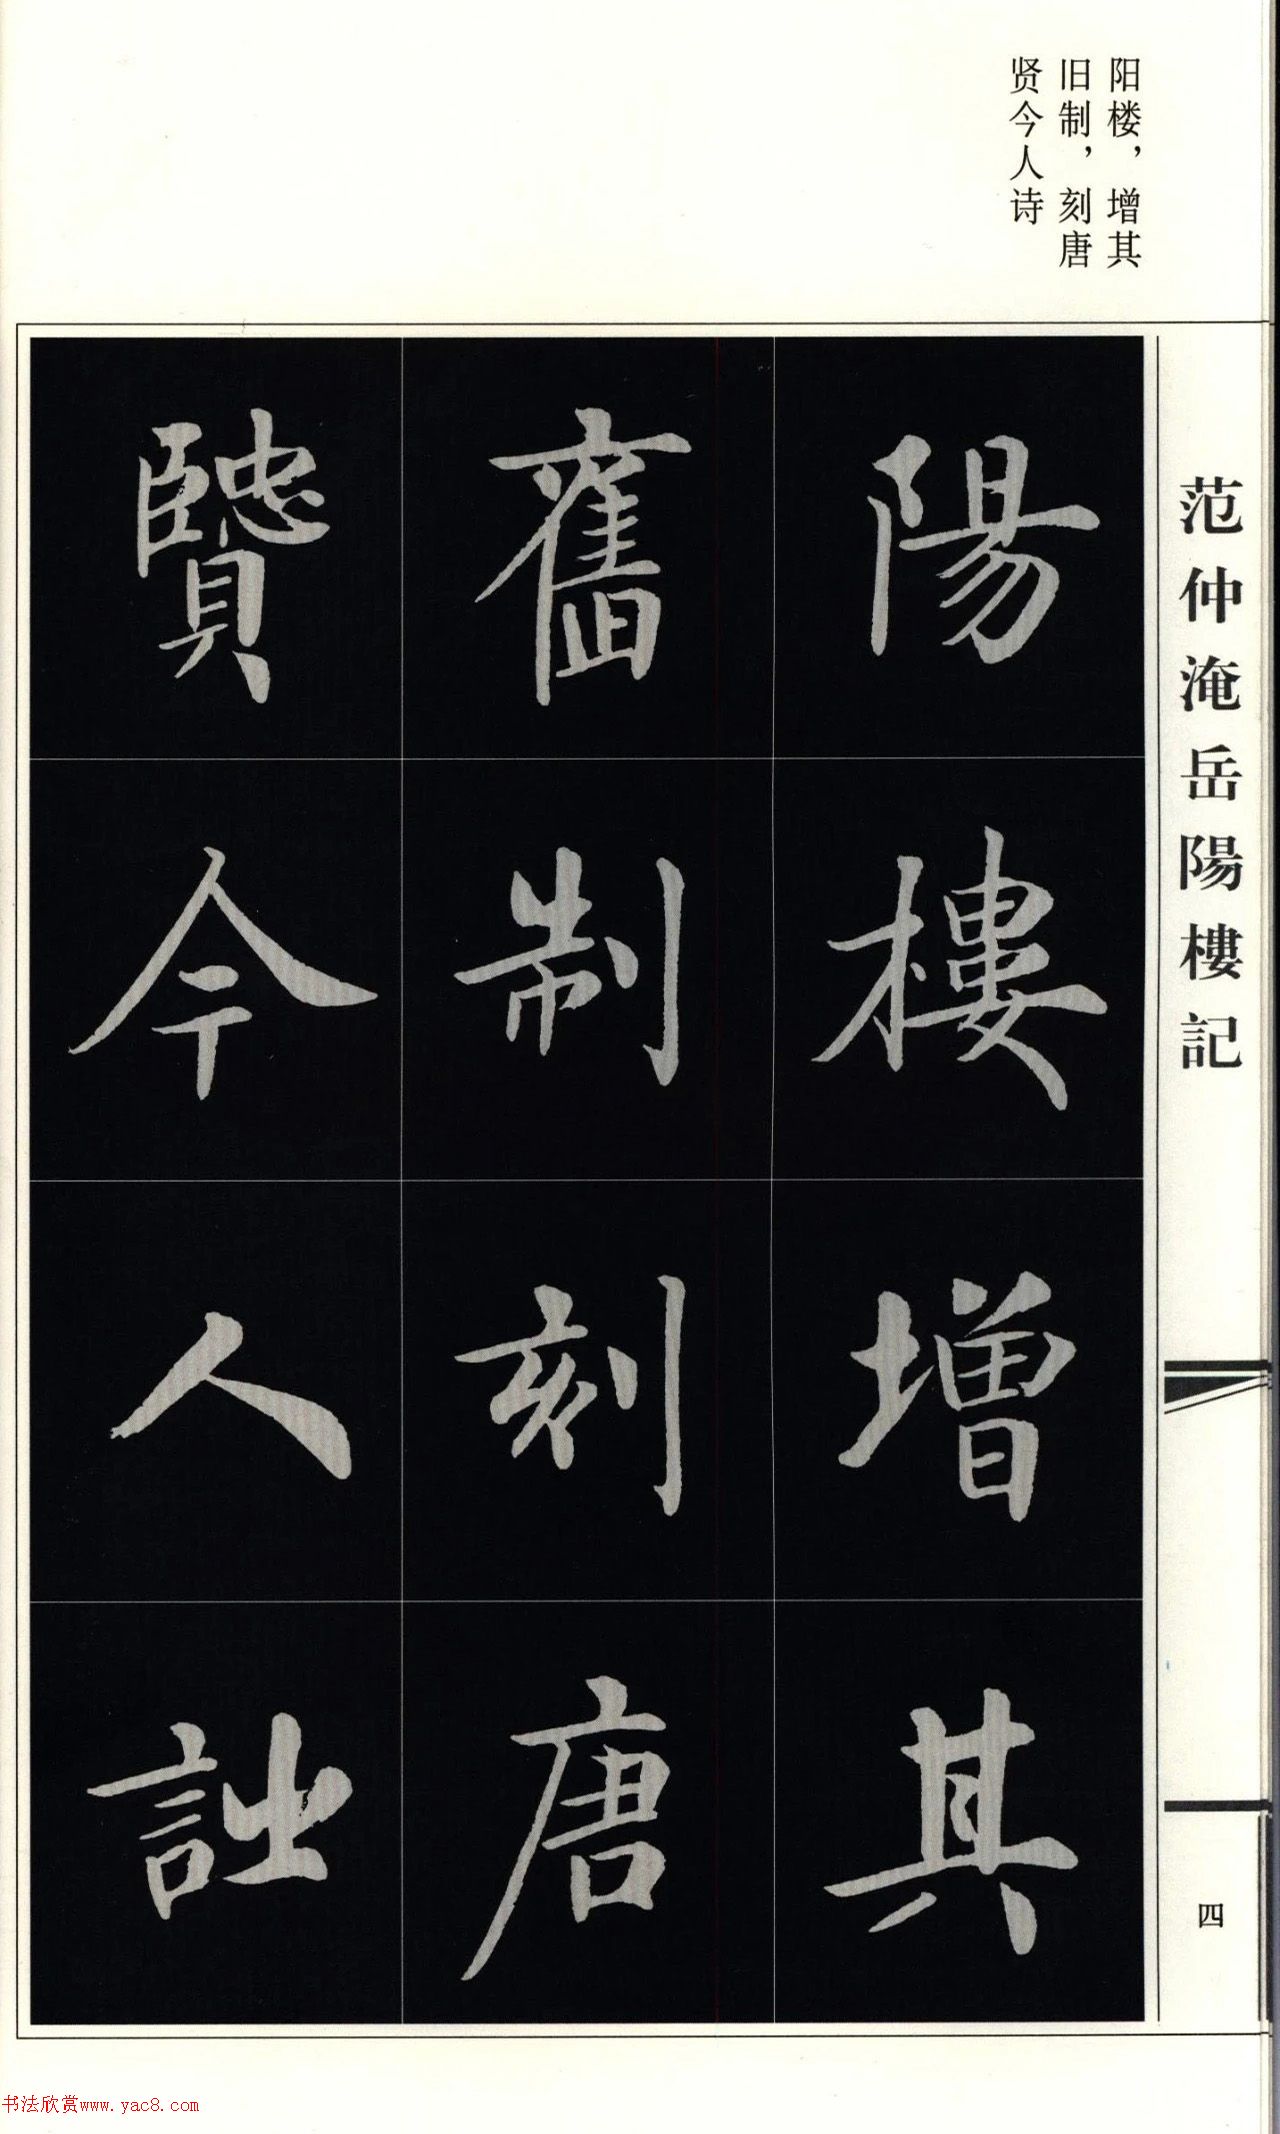 阳楼，增其
旧制，刻唐
贤今人诗
范仲淹岳陽樓記
四
陽樓增其
舊制刻唐
贒今人詩
书法欣赏www.yac8.com